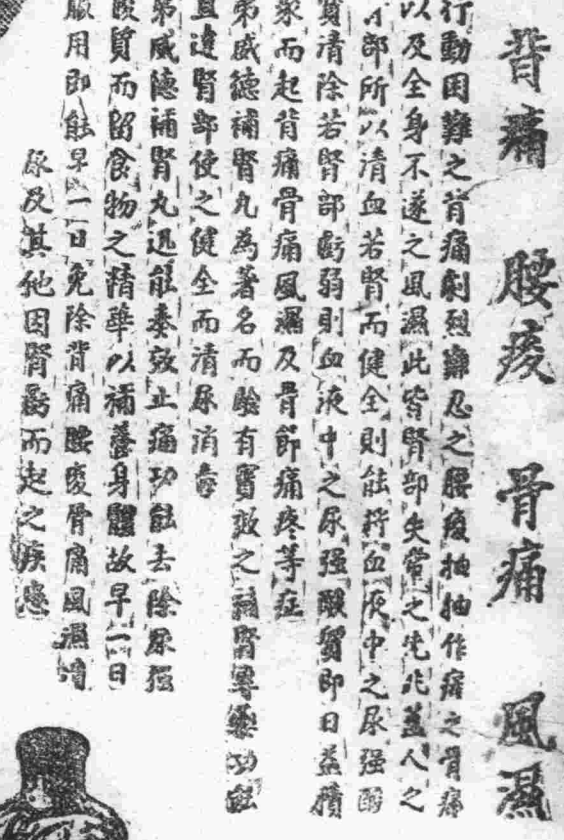 背痛 腰痠 骨痛 風濕
行動困難之背痛劇烈難忍之腰痠抽抽作痛之骨痛
以及全身不遂之風濕此皆腎部失常之先兆蓋人之
部所以清血若腎而健全則能將血液中之尿强酸
質清除若腎部虧弱則血液中之尿强酸質即日益積
聚而起背痛骨痛風濕及骨節痛疼等症
弟威德補腎丸為著名而驗有實效之補腎專藥功能
直達腎部使之健全而清尿消毒
弟威德補腎丸迅能奏效止痛功能去除尿强
酸質而留食物之精華以補養身體故早一日
服用即能早一日免除背痛腰痠骨痛風濕
尿及其他因腎虧而起之疾患